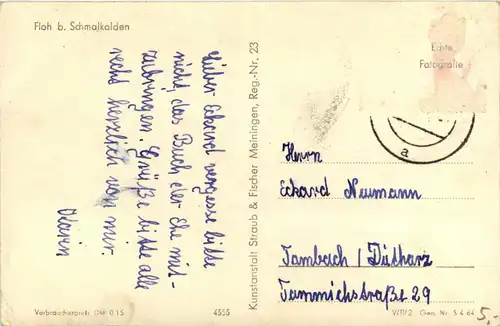 Floh b. Schmalkalden
Lieber Eckard vergesse bitte
nicht, das Buch der Ehe mit-
zubringen. Grüße bitte alle
recht herzlich von mir.
Karin
Verbraucherpreis DM 0.15
4555
Kunstanstalt Straub & Fischer Meiningen, Reg.-Nr. 23
Echte
Fotografie
a
Herrn
Eckard Neumann
Tambach / Dietharz
Tammichstraße 29
V/11/2 Gen. Nr. S 4 64
5,-